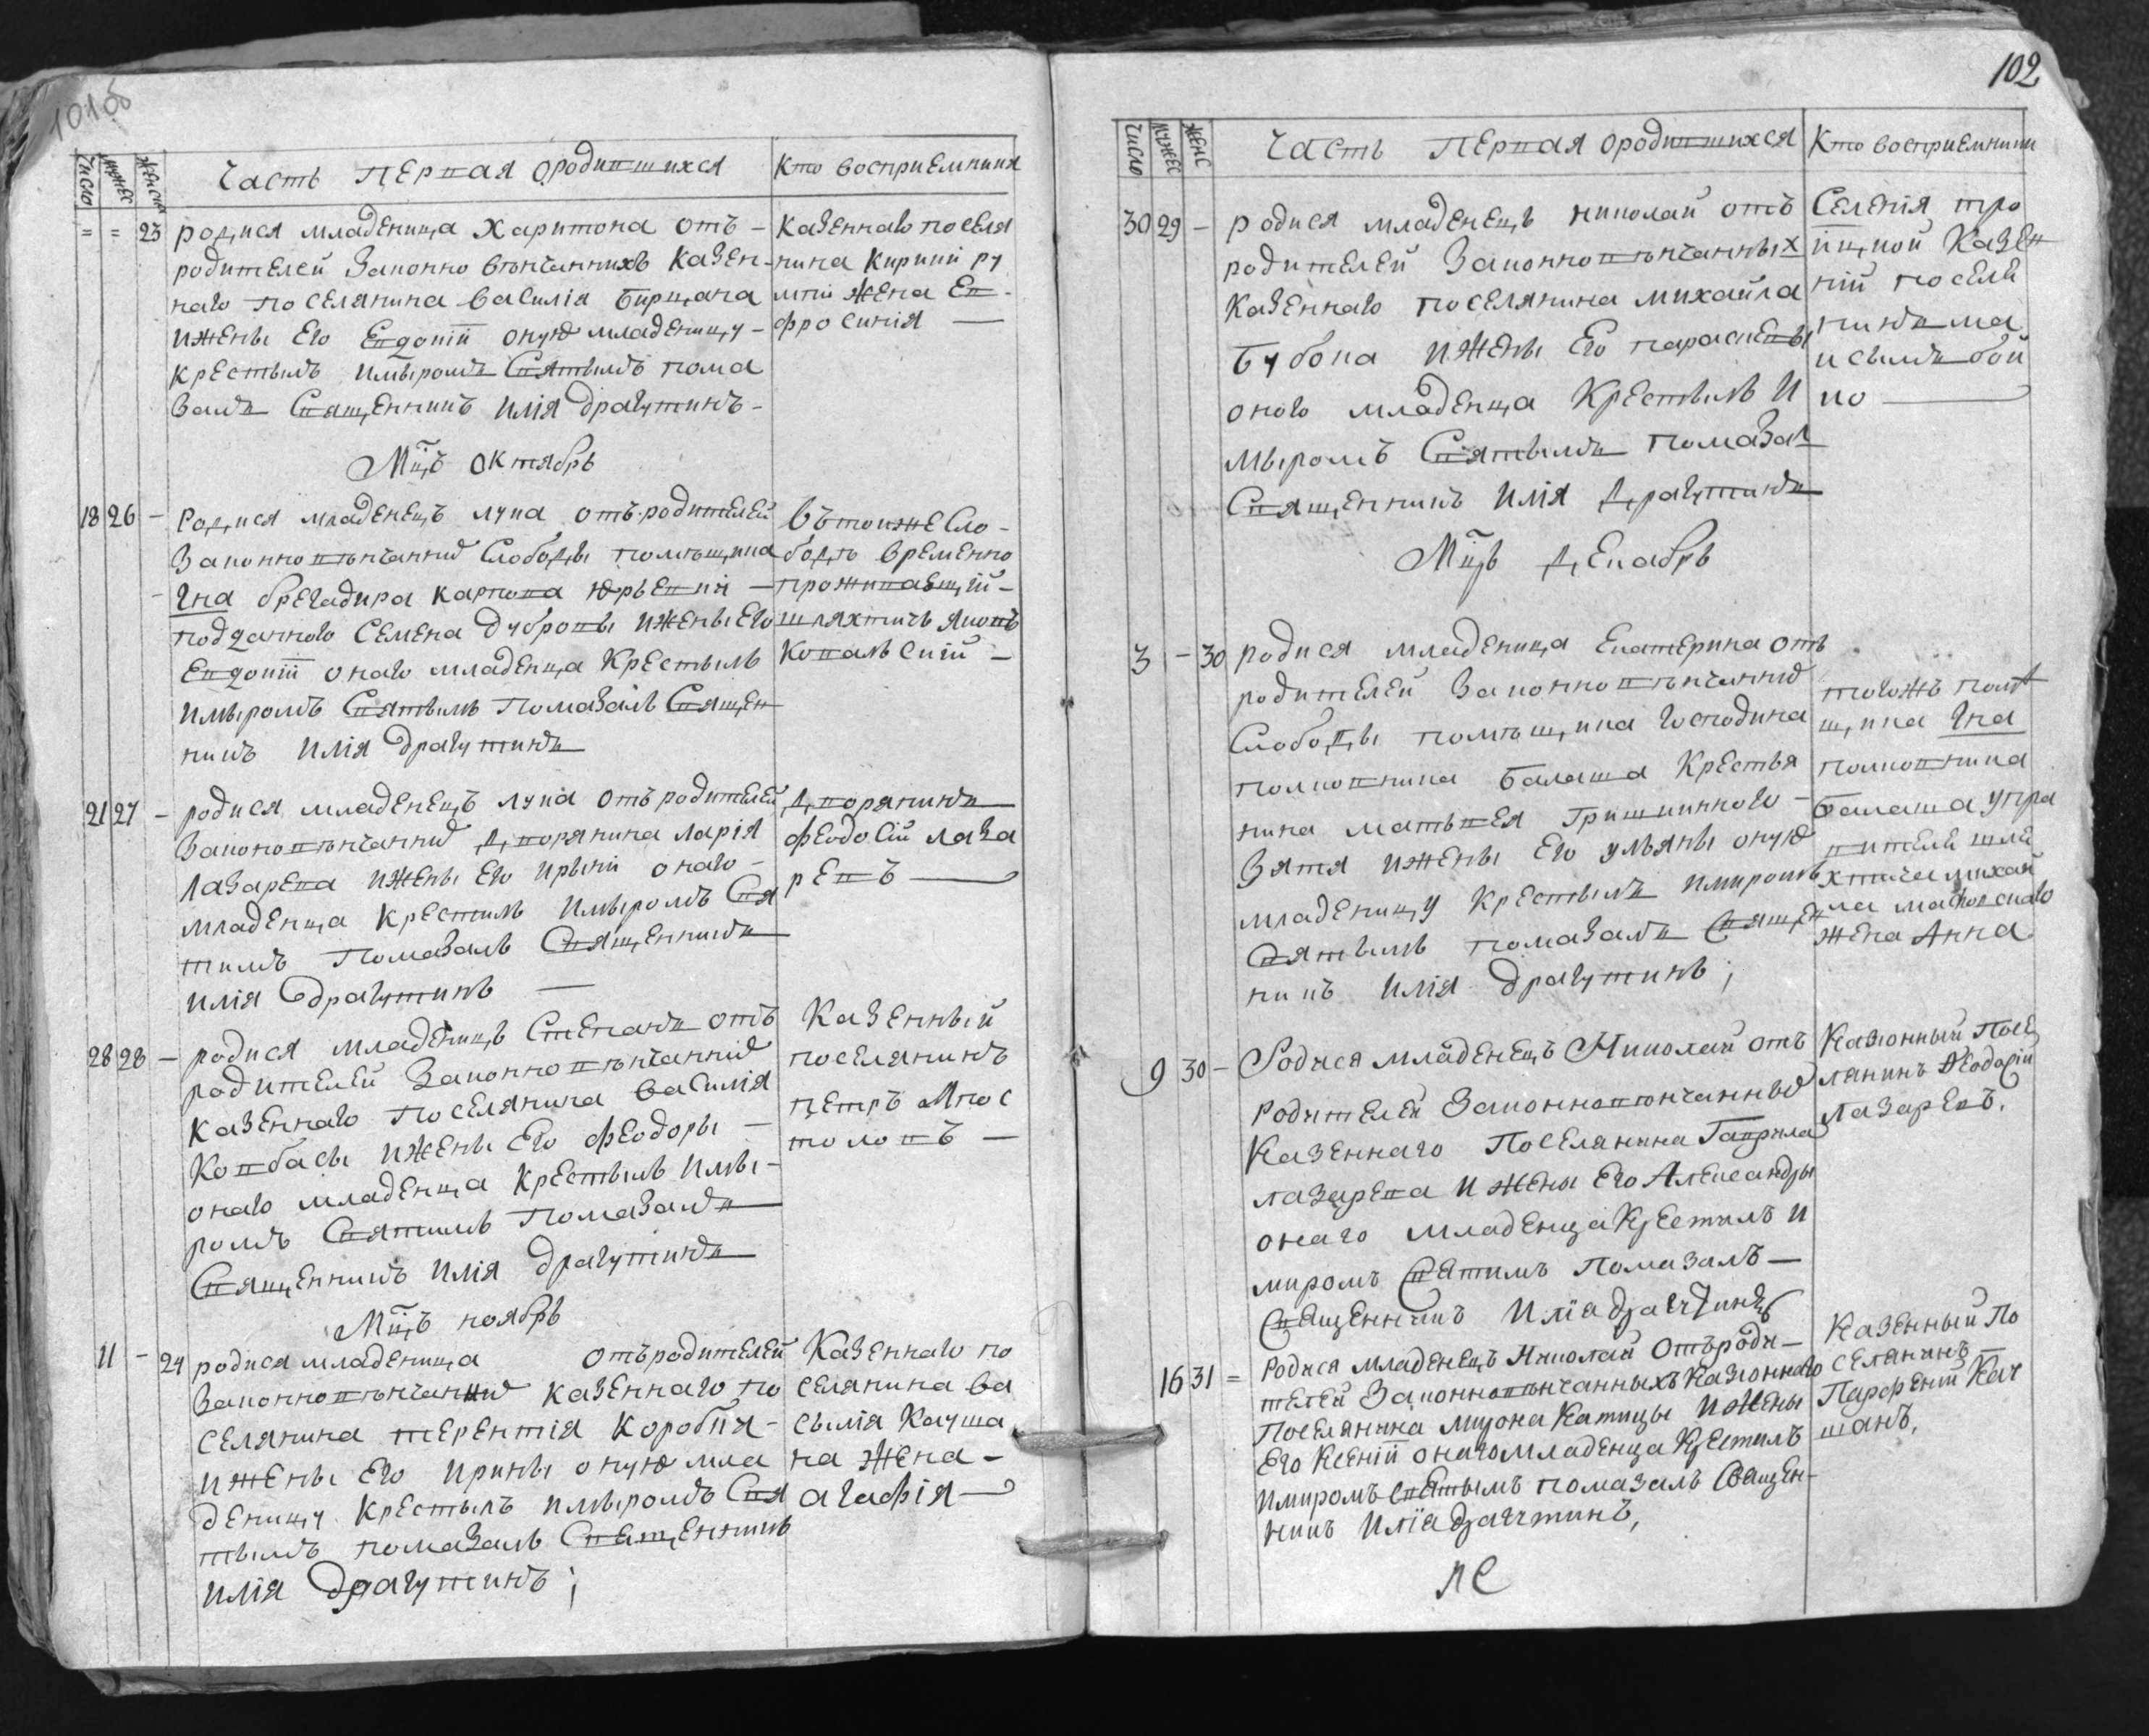 101об
Число мужес женска
Часть первая ородившихся
Кто восприемники
= = 23
родися младеница Харитона отъ –
родителей Законно вѣнчаннихъ Казен-
наго поселянина василія Бирцана
ижены Его Евдокіи оную младеницу –
крестылъ имыромъ Святымъ пома
валъ Священникъ Илія драгутинъ –
Казеннаго поселя
нина Кирики ру
жена Ев-
фросинія —
Мцъ Октябрь
18 26 –
Родися младенецъ лука отъ родителей
Законновѣнчанних Слободы помѣщика
Гна брегадира Карпова юрьевки –
подданного Семена дубровы ижены Его
Евдокіи онаго младенца Крестылъ
имыромъ Святымъ Помазалъ Священ
никъ Илія драгутинъ
Въ тоиже Сло-
бодѣ временно
проживающій –
шляхтичъ Яковъ
Ковальскій –
21 27 –
родися младенецъ лука отъ родителей
Законовѣнчанних дворянина ларія
Лазарева ижены Его ирыни онаго –
младенца Крестилъ имыромъ Свя
тимъ Помазалъ Священникъ
Илія драгутинъ —
Дворянинъ
Феодосій лаза
ревъ —
28 28 –
родися младенецъ Стеѳанъ отъ
родителей Законновѣнчанних
Казеннаго Поселянина василія
Ковбасы ижены Его Феодоры –
онаго младенца Крестылъ имы-
ромъ Святимъ Помазалъ
Священникъ Илія драгутинъ
Казенный
поселянинъ
петръ Апос
толовъ –
Мцъ ноябрь
11 – 24
родися младеница отъ родителей
Законновѣнчанних Казеннаго по
селянина терентія Коробка –
ижены Его Ирины оную мла
деницу Крестылъ имыромъ Свя
тымъ помазалъ Священникъ
Илія драгутинъ ;
Казеннаго по
селянина ва
сылія Кауша
на жена –
агафія —
102
Число мужес женс
Часть первая ородившихся
Кто восприемники
30 29 –
родися младенецъ николай отъ
родителей Законновѣнчанных
Казеннаго поселянина михайла
Бубока ижены Его параскевы
оного младенца Крестылъ и
Мыромъ Святымъ Помазал
Священникъ Илія драгутинъ
Селенія тро
ицкой Казен
ній поселя
нинъ ма
ксымъ бой
ко —
Мцъ декабрь
3 – 30
родися младеница Екатерина отъ
родителей Законновѣнчанних
Слободы помѣщика Господина
полковника Балаша Крестья
нина матвея Гришкиного –
Зятя ижены Его ульяны оную
младеницу Крестылъ имиромъ
Святымъ помазалъ Священ
никъ Илія драгутинъ ;
тогожъ помѣ
щика Гна
полковника
Балаша упра
вителя шля
хтича михай
ла
жена Анна
9 30 –
Родися младенецъ Николай отъ
родителей Законновѣнчанных
Казеннаго Поселянина Гаврила
лазарева ижены Его Александры
онаго младенца Крестилъ и
миромъ Святимъ помазалъ –
Священникъ Илія драгутинъ
Казіонный Посе
лянинъ Феодосій
лазаревъ.
16 31 =
Родися младенецъ Николай Отъ роди –
телей Законновѣнчанныхъ Казіоннаго
Поселянина Мирона Катицы ижены
Его Ксеніи онаго младенца Крестилъ
имиромъ святымъ помазалъ Священ-
никъ Илія драгутинъ,
Казенный По
селянинъ –
Парфеній Кау
шанъ.